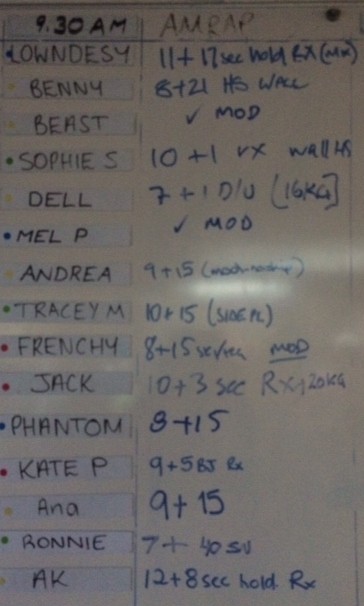 9.30 AM AMRAP
LOWNDESY 11 + 17sec hold RX (MX)
BENNY 8+21 HS WALL
BEAST ✓ MOD
SOPHIE S 10 +1 rx wall HS
DELL 7 + 1 D/U [16KG]
MEL P ✓ MOD
ANDREA 9+15
TRACEY M 10+15 (SIDE PL)
FRENCHY 8+15 MOD
JACK 10+3 sec Rx 20KG
PHANTOM 8+15
KATE P 9+5 BJ Rx
Ana 9+ 15
RONNIE 7+ 40 SU
AK 12+8sec hold Rx